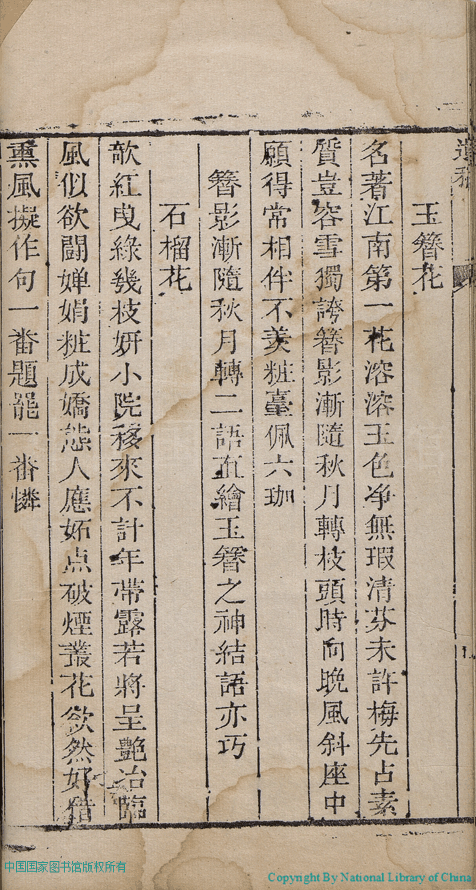 遺稿
玉簪花
名著江南第一花溶溶玉色净無瑕清芬未許梅先占素
質豈容雪獨誇簪影漸隨秋月轉枝頭時向晚風斜座中
願得常相伴不羨粧臺佩六珈
簪影漸隨秋月轉二語直繪玉簪之神結語亦巧
石榴花
欹紅曳綠幾枝妍小院移來不計年帶露若將呈艷冶臨
風似欲鬪嬋娟粧成嬌態人應妬点破煙叢花欲然好借
熏風擬作句一番題罷一番憐
中国国家图书馆版权所有
Copyright By National Library of China